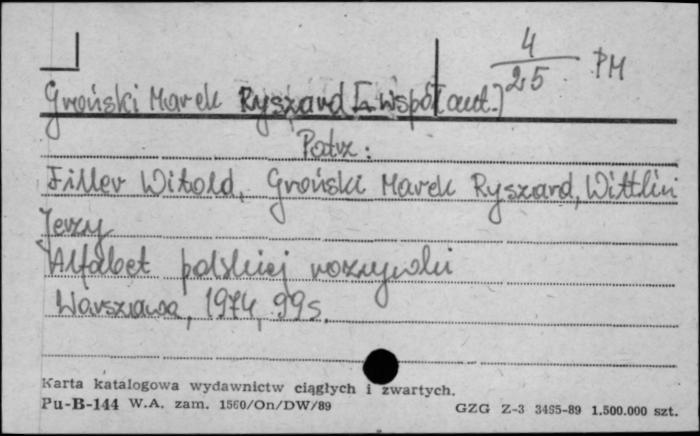 4
25 PM
Groński Marek Ryszard [współaut.]
Patrz:
Filler Witold, Groński Marek Ryszard, Wittlin
Jerzy
Alfabet polskiej rozrywki
Warszawa, 1974, 99s.
Karta katalogowa wydawnictw ciągłych i zwartych.
Pu-B-144 W.A. zam. 1560/On/DW/89 GZG Z-3 3485-89 1.500.000 szt.